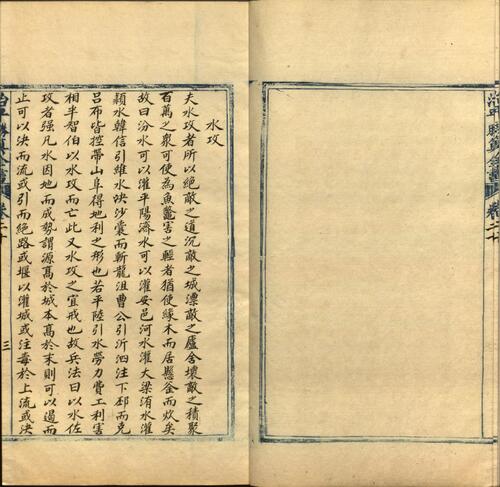 水攻
夫水攻者所以絕敵之道沉敵之城漂敵之廬舍壞敵之積聚
百萬之衆可使為魚鼈害之輕者猶使緣木而居懸釜而炊矣
故曰汾水可以灌平陽濟水可以灌安邑河水灌大梁洧水灌
潁水韓信引維水決沙囊而斬龍沮曹公引沂泗注下邳而克
呂布皆控帶山阜得地利之形也若平陸引水勞力費工利害
相半智伯以水攻而亡此又水攻之宜戒也故兵法曰以水佐
攻者强凡水因地而成勢謂源髙於城本髙於末則可以遏而
止可以決而流或引而絕路或堰以灌城或注毒於上流或決
治平勝算全書
卷二十
三